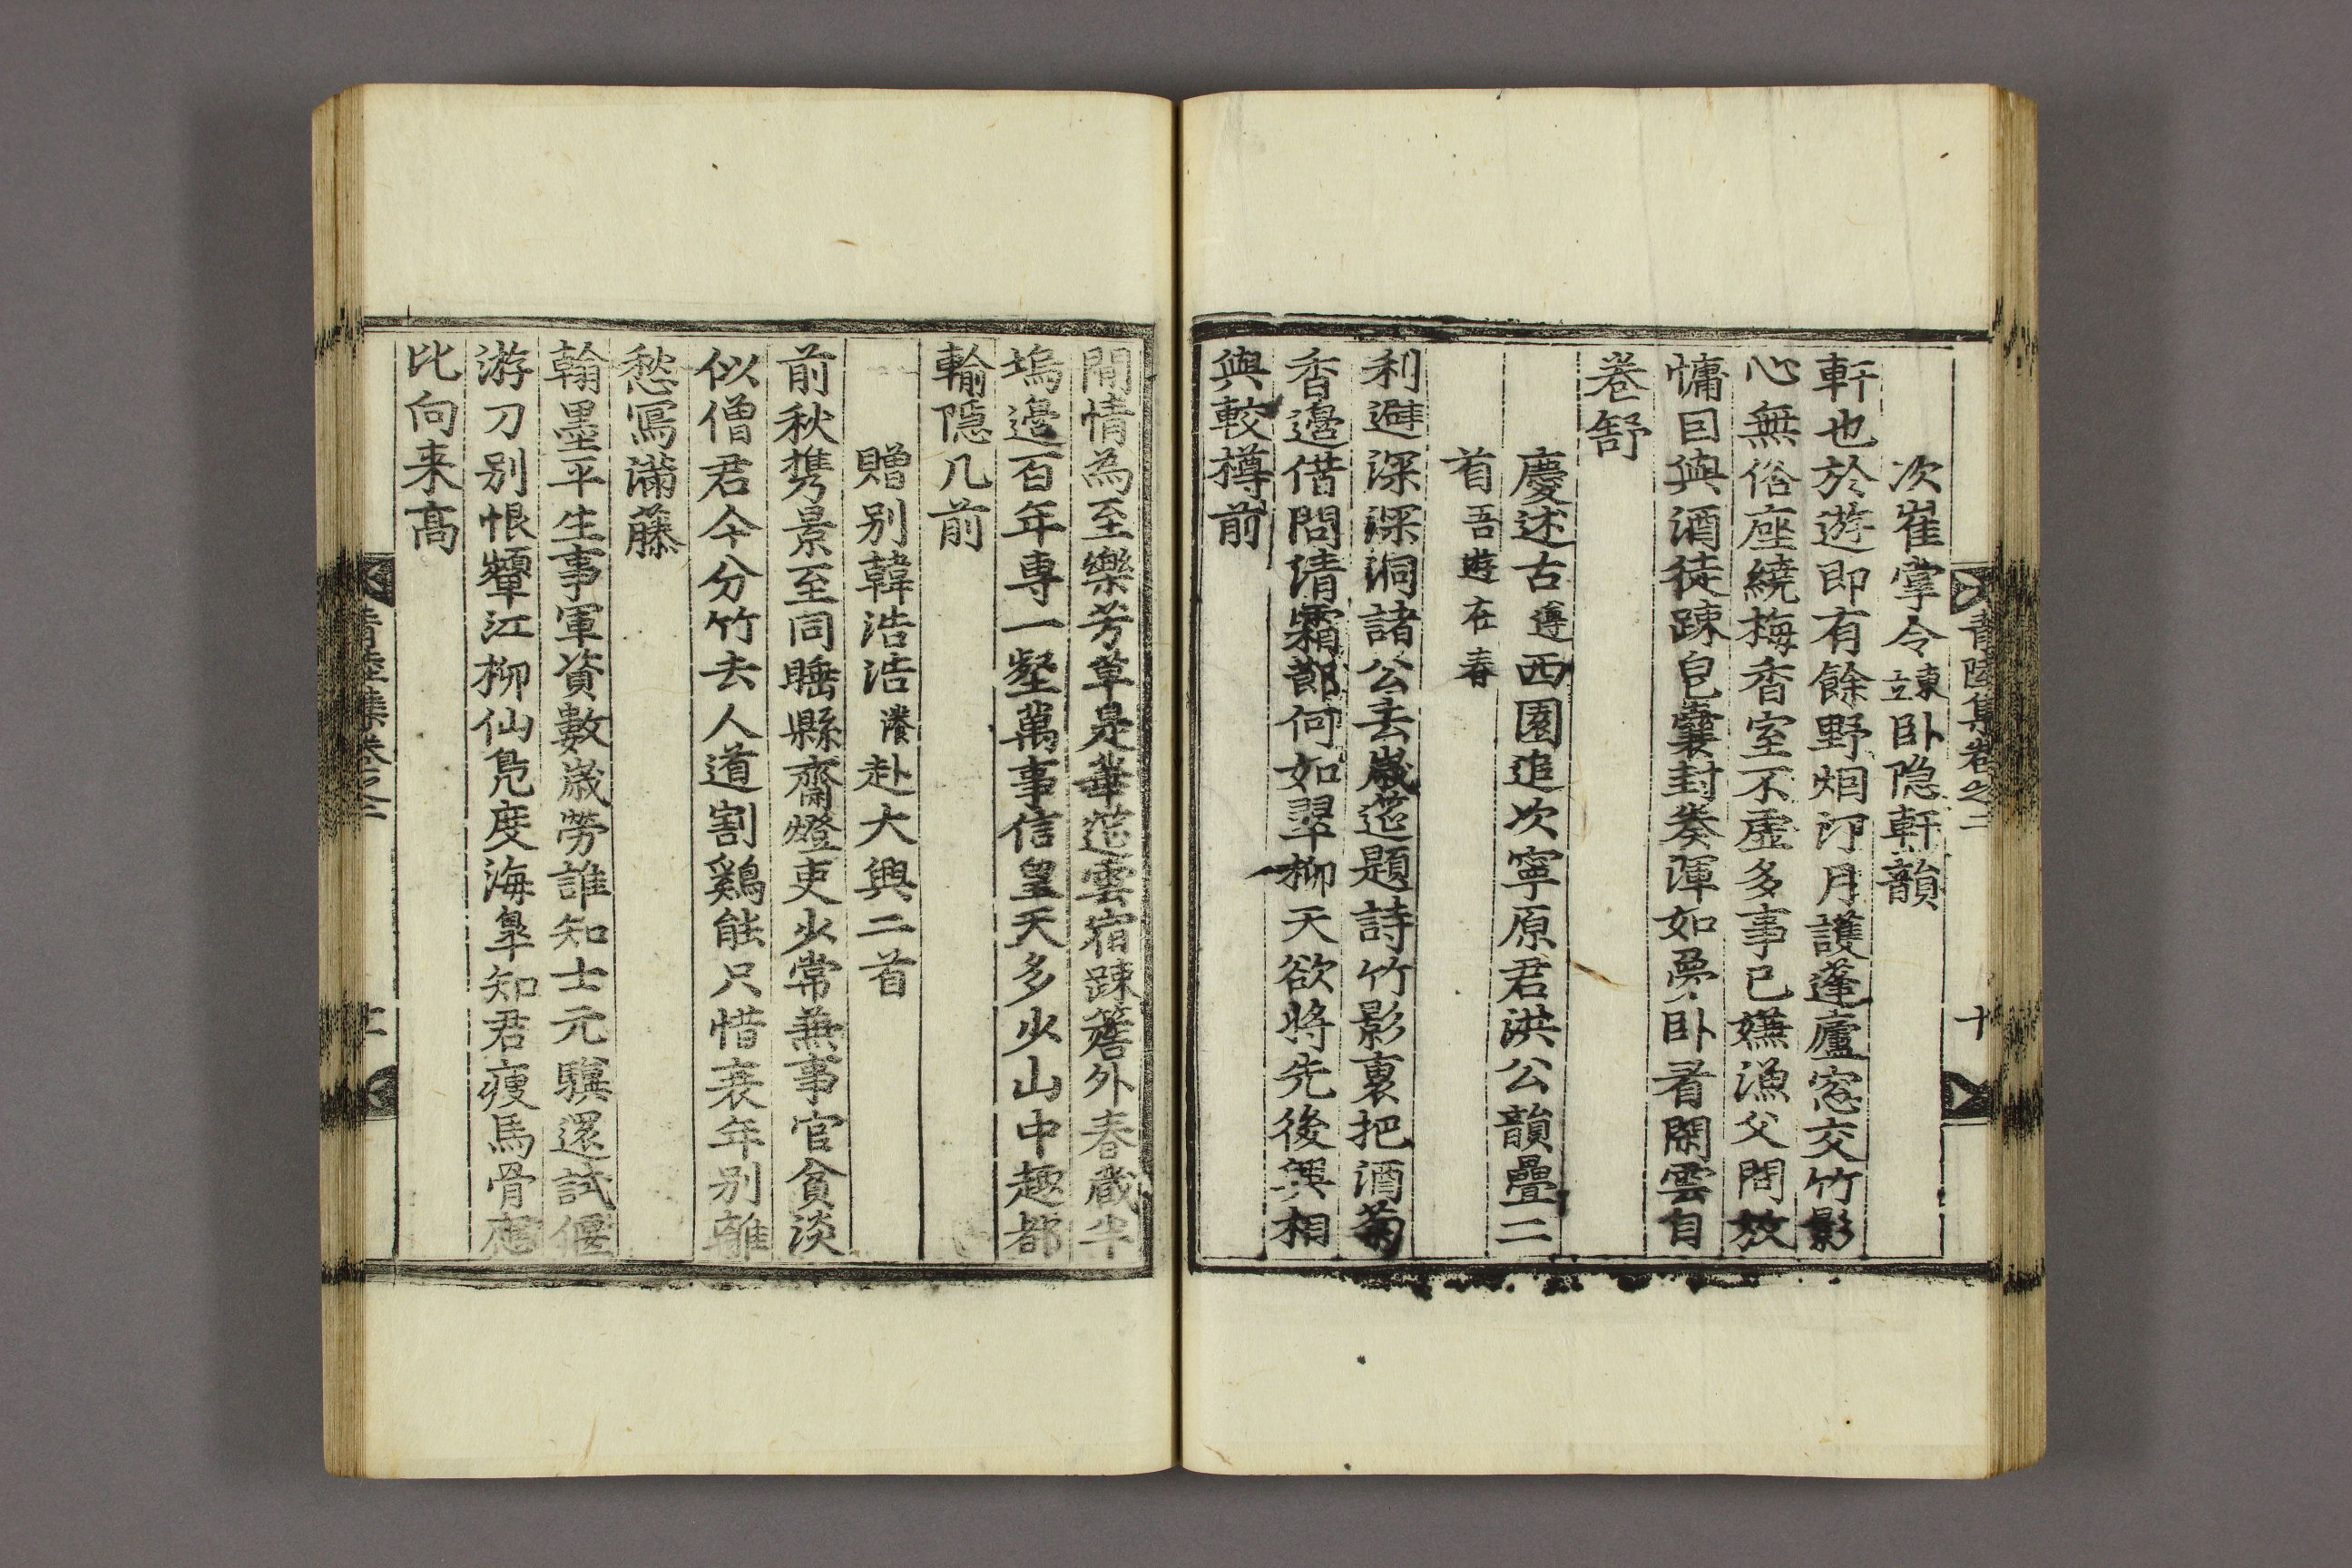 青陸集卷之二 十
次崔掌令竦卧隐軒韻
軒也於遊即有餘野烟沙月護蓬廬窓交竹影
心無俗座繞梅香室不虛多事已嫌漁父問放
慵目與酒徒踈皂囊封奏渾如夢卧看閑雲自
卷舒
慶述古遵西園追次寧原君洪公韻疊二
首吾遊在春
利避深深洞諸公去歲筵題詩竹影裏把酒菊
香邊借問淸霜節何如翠柳天欲將先後興相
與較樽前
閒情為至樂芳草是華筵雲宿踈簷外春蔵半
塢邊百年専一壑萬事信皇天多少山中趣都
輸隠几前
贈别韓浩浩瀁赴大興二首
前秋携景至同睡縣齋燈吏少常無事官貧淡
似僧君今分竹去人道割鷄能只惜衰年别離
愁寫滿藤
翰墨平生事軍資數歲勞誰知士元驥還試偃
游刀别恨顰江柳仙凫度海皐知君瘦馬骨應
比向来高
青陸集卷之二